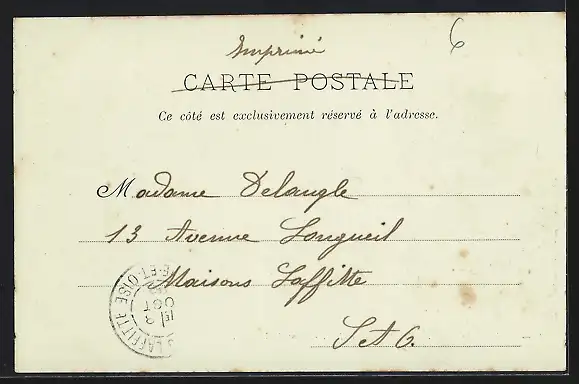 Imprimé
6
CARTE POSTALE
Ce côté est exclusivement réservé à l'adresse.
Madame Delaugle
13 Avenue Longueil
Maisons Laffitte
S et O.
LAFFITTE
ET-OISE
OCT